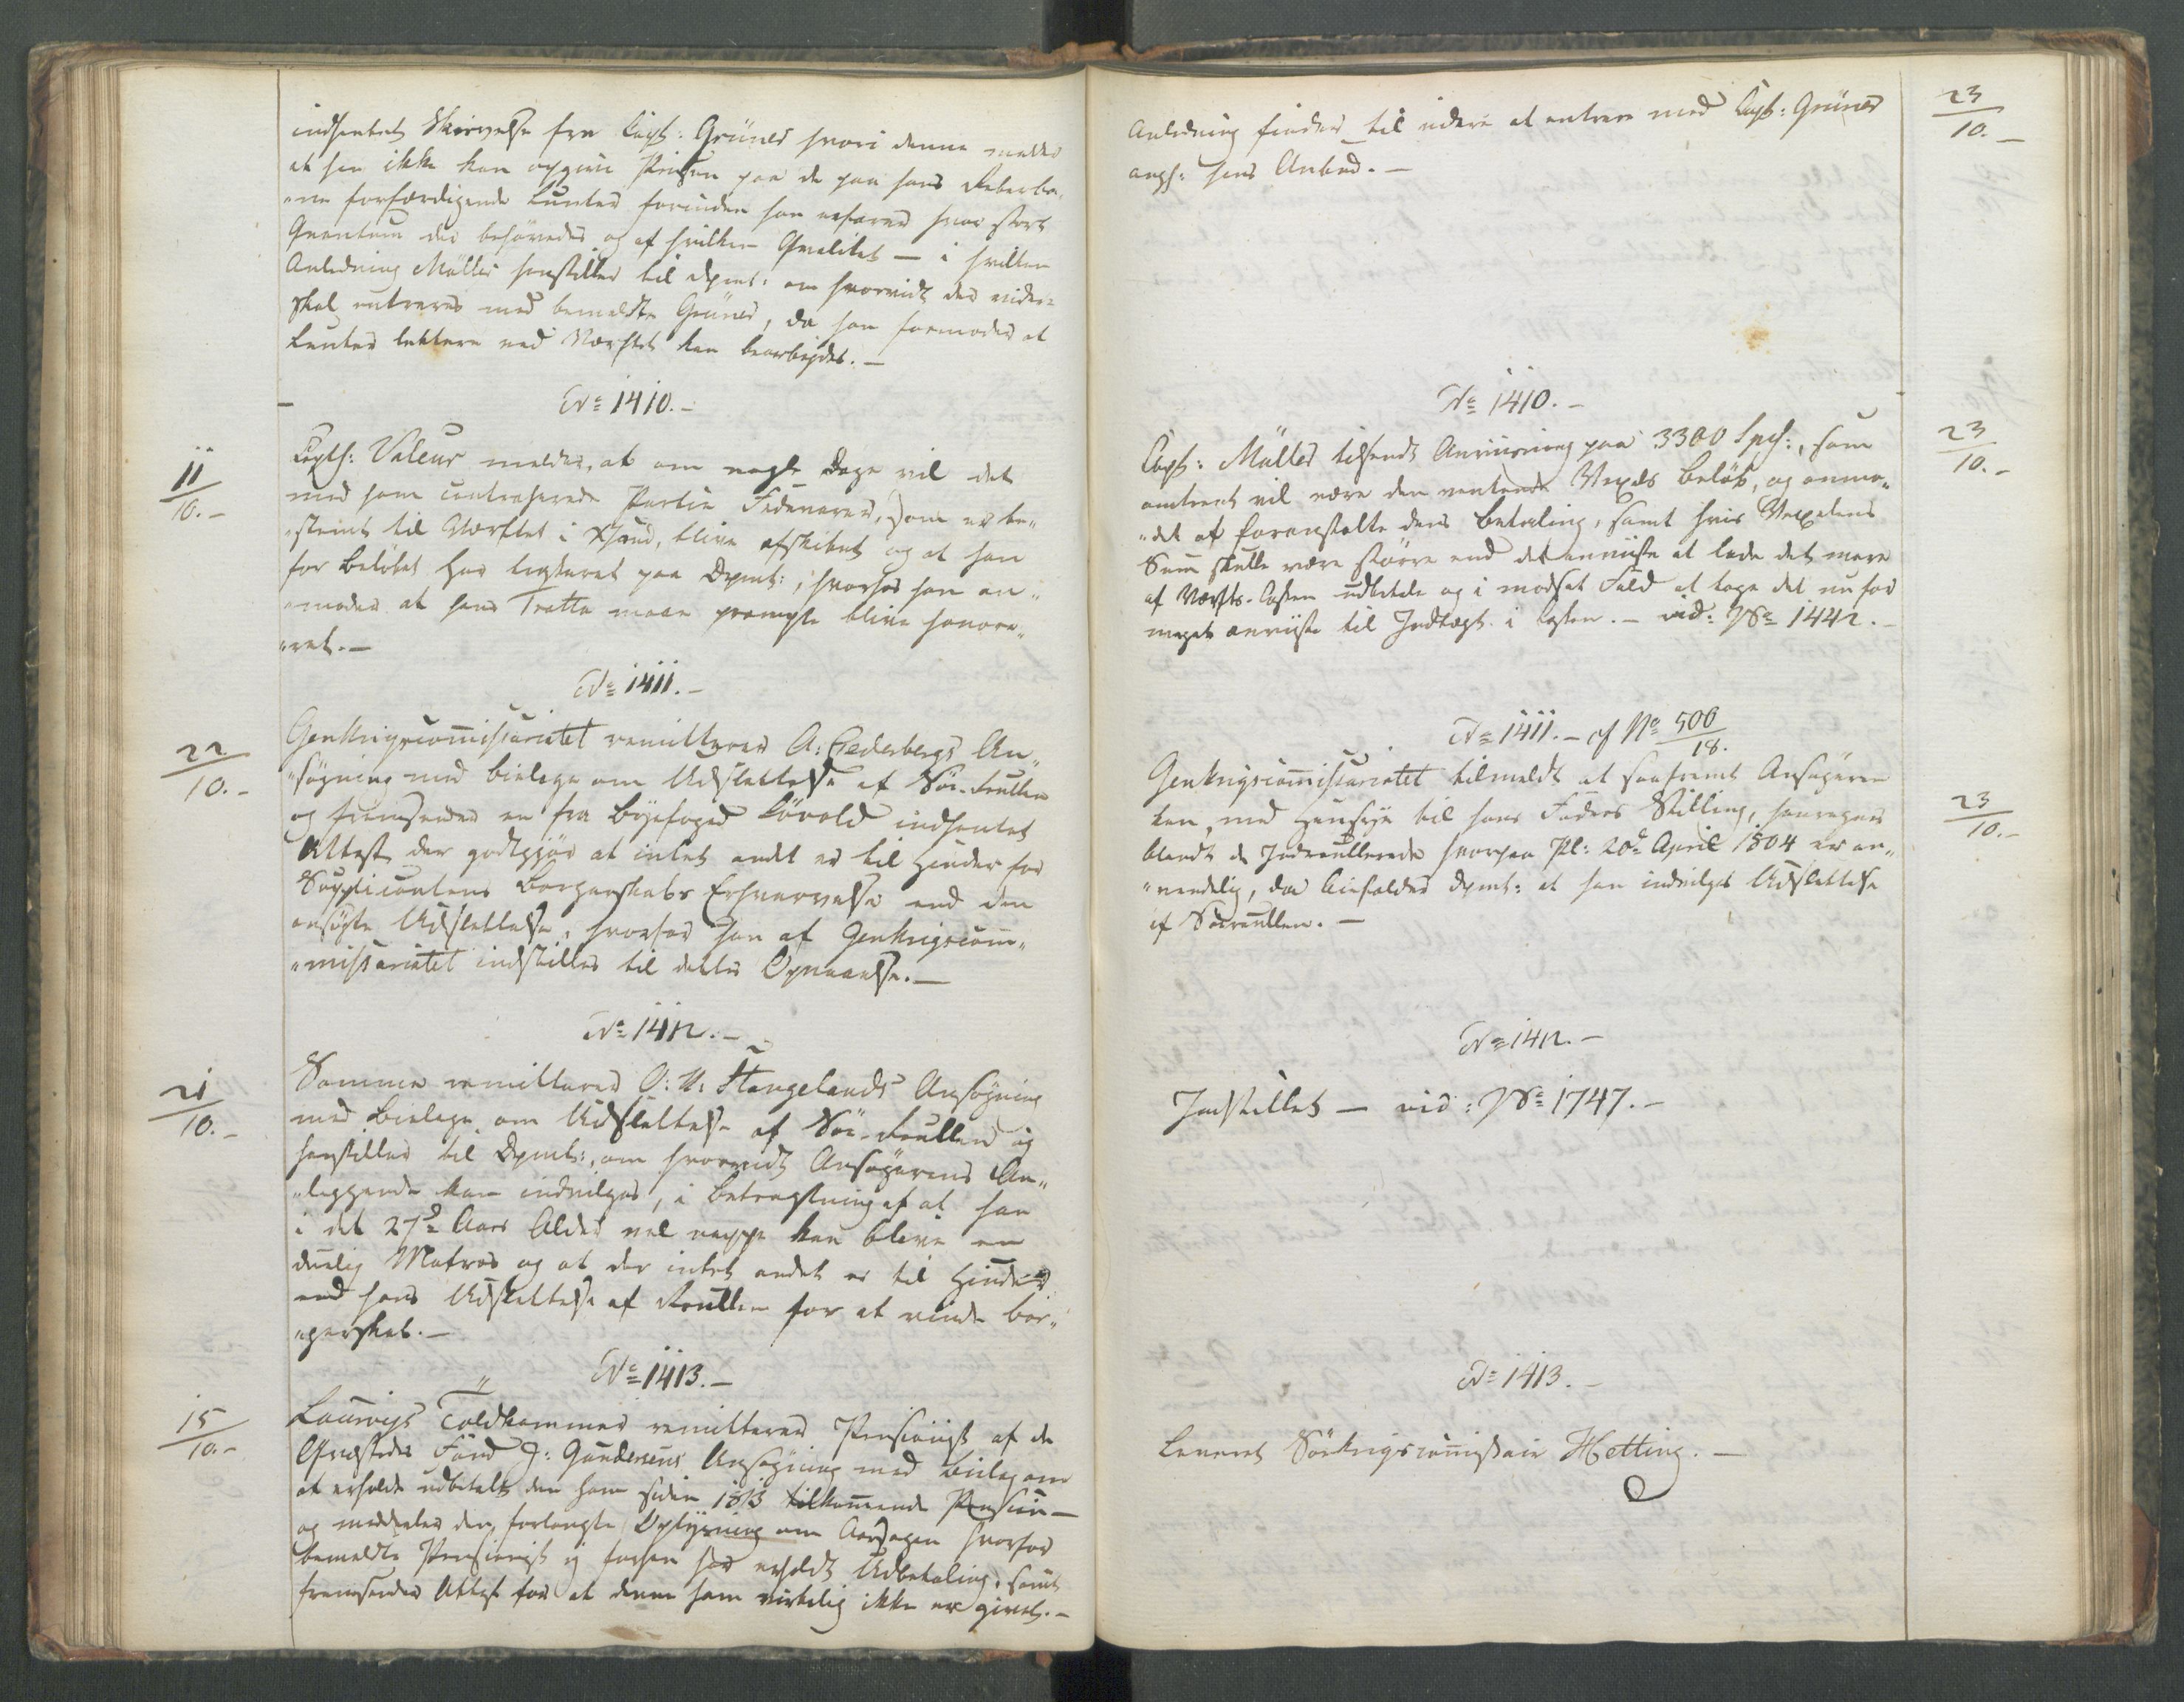 indhentet Skrivelse fra Capt: Grüner hvori denne melder
at han ikke kan opgive Prisen paa de paa hans Reberba-
"ne forfærdigende Lunter forinden han erfarer hvor stort
Qvantum der behøvedes og af hvilken Qvalitet — i hvilken
Anledning Müller henstiller til Dpmt: om hvorvidt der videre
skal entreres med bemeldte Grüner, da han formoder at
Lunter lettere ved Værftet kan bearbeides. —
No 1410. —
11/10. —
Capt: Valeur melder, at om nogle Dage vil det
med ham contraherede Partie Fedevarer, som er be-
"stemt til Værftet i XSand, blive afskibet og at han
for Beløbet har trasseret paa Dpmt:, hvorfor han an-
"moder at hans Tratta maae prompte blive honore-
"ret. —
No 1411. —
22/10. —
Genkrigscommissariatet remitterer A: Cederbergs An-
"søgning med Bielage om Udslettelse af Søe-Rullen
og fremsender en fra Byefoged Løvold indhentet
Attest, der godtgjør at intet andet er til Hinder for
Supplicantens Borgerskabs Erhvervelse end den
ansøgte Udslettelse, hvorfor han af Genkrigscom-
"missariatet indstilles til dettes Opnaaelse. —
No 1412. —
21/10. —
Samme remitterer O: H: Stangelands Ansøgning
med Bielage om Udslettelse af Søe-Rullen og
henstiller til Dpmt:, om hvorvidt Ansøgerens An-
"liggende kan indvilges, i Betragtning af at han
i det 27de Aars Alder vel neppe kan blive en
duelig Matros og at der intet andet er til Hinder
end hans Udslettelse af Rullen for at vinde Bor-
"gerskab. —
No 1413. —
15/10. —
Laurvigs Toldkammer remitterer Pensionist af de
Qvæstedes Fond J: Gundersens Ansøgning med Bielag om
at erholde udbetalt den ham siden 1813 tilkommende Pension —
og meddeler den forlangte Oplysning om Aarsagen hvorfor
bemeldte Pensionist ej forhen har erholdt Udbetaling, samt
fremsender Attest for at denne ham virkelig ikke er givet. —
Anledning finder til videre at entrere med Capt: Grüner
angd: hans Anbud. —
23/10. —
No 1410. —
23/10. —
Capt: Müller tilsendt Anviisning paa 3300 Spd:, som
omtrent vil være den ventende Vexels Beløb, og anmo-
"det at foranstalte dens Betaling, samt hvis Vexelens
Sum skulle være større end det anviiste at lade det mere
af Værfts-Cassen udbetale og i modsat Fald at tage det nu for
meget anviiste til Indtægt i Cassen. — vid: No 1442. —
No 1411. — cf No 506/18.
23/10. —
Genkrigscommissariatet tilmeldt at saafremt Ansøgeren
kan, med Hensyn til hans Faders Stilling, henregnes
blandt de Indroullerede hvorpaa Pl: 20de April 1804 er an-
"vendelig, da bifalder Dpmt: at han indvilges Udslettelse
af Søerullen. —
No 1412. —
Indstillet — vid: No 1747. —
No 1413. —
Leveret Søekrigscommissair Hetting. —